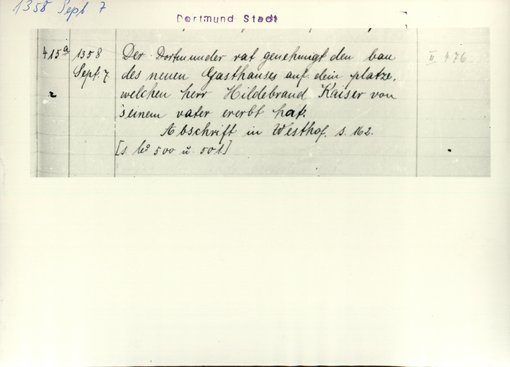 1358 Sept 7
Dortmund Stadt
415a 1358 Der Dortmunder rat genehmigt den bau II 476
Sept. 7 des neuen Gasthauses auf dem platze,
2 welchen herr Hildebrand Kaiser von
seinem vater ererbt hat.
Abschrift in Westhof. s. 162.
[s. No 500 u 501]